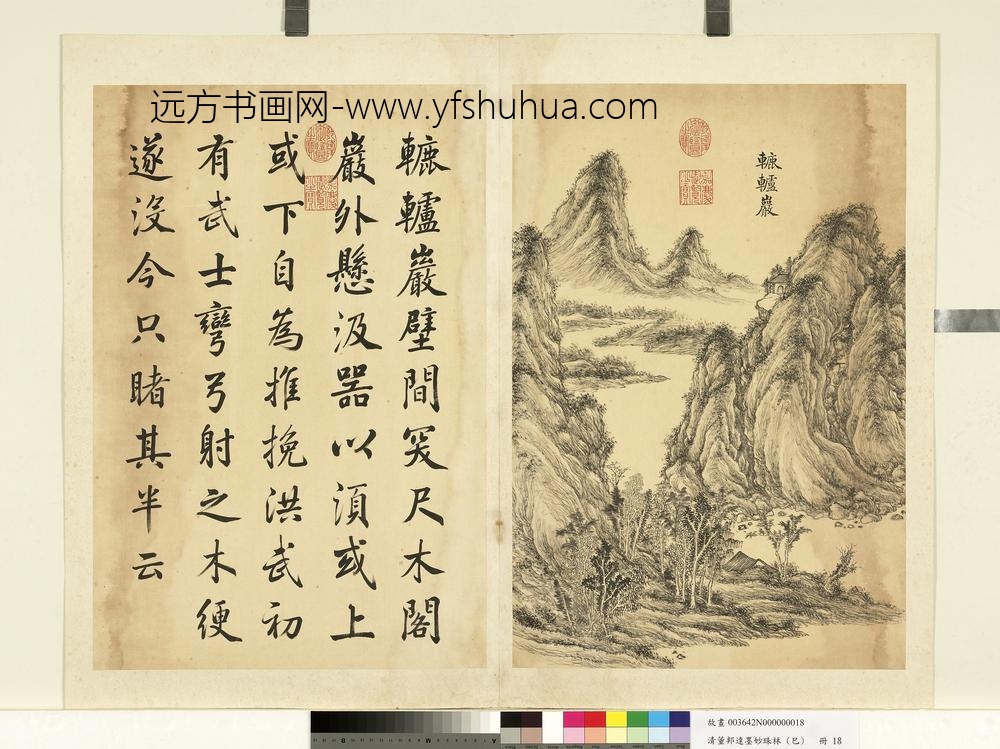 远方书画网-www.yfshuhua.com
轆轤巖
轆轤巖壁間突尺木閣
巖外懸汲器以須或上
或下自為推挽洪武初
有武士彎弓射之木綆
遂没今只睹其半云
故畫 003642N000000018
清董邦達墨妙珠林（巳） 冊 18